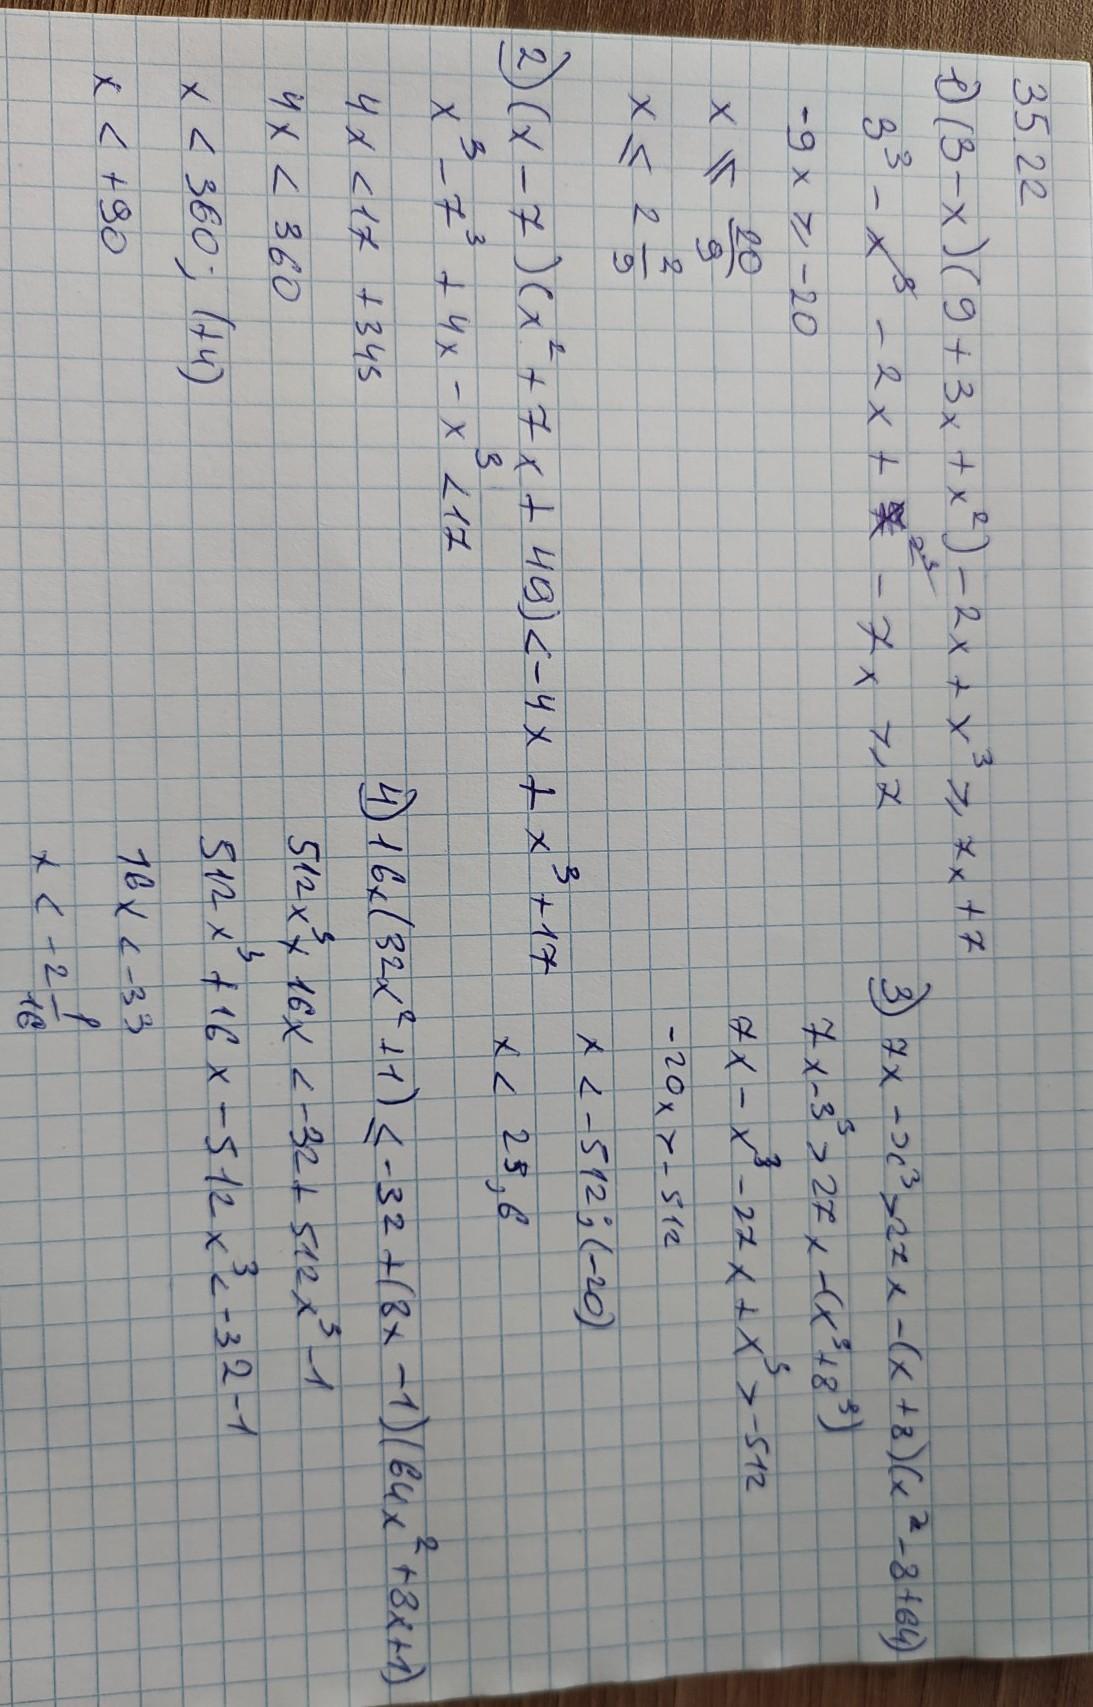 35.22
1) (3-x)(9+3x+x²)-2x+x³ ≥ 7x+7
3³-x³-2x+x³-7x ≥ 7
-9x ≥ -20
x ≤ 20/9
x ≤ 2 2/9
2) (x-7)(x²+7x+49)<-4x+x³+17
x³-7³+4x-x³<17
4x<17+343
4x<360
x<360:(+4)
x<+90
3) 7x-x³>27x-(x+8)(x²-8+64)
7x-3³>27x-(x³+8³)
7x-x³-27x+x³>-512
-20x>-512
x<-512:(-20)
x<25,6
4) 16x(32x²+1)≤-32+(8x-1)(64x²+8x+1)
512x³+16x<-32+512x³-1
512x³+16x-512x³<-32-1
16x<-33
x<-2 1/16